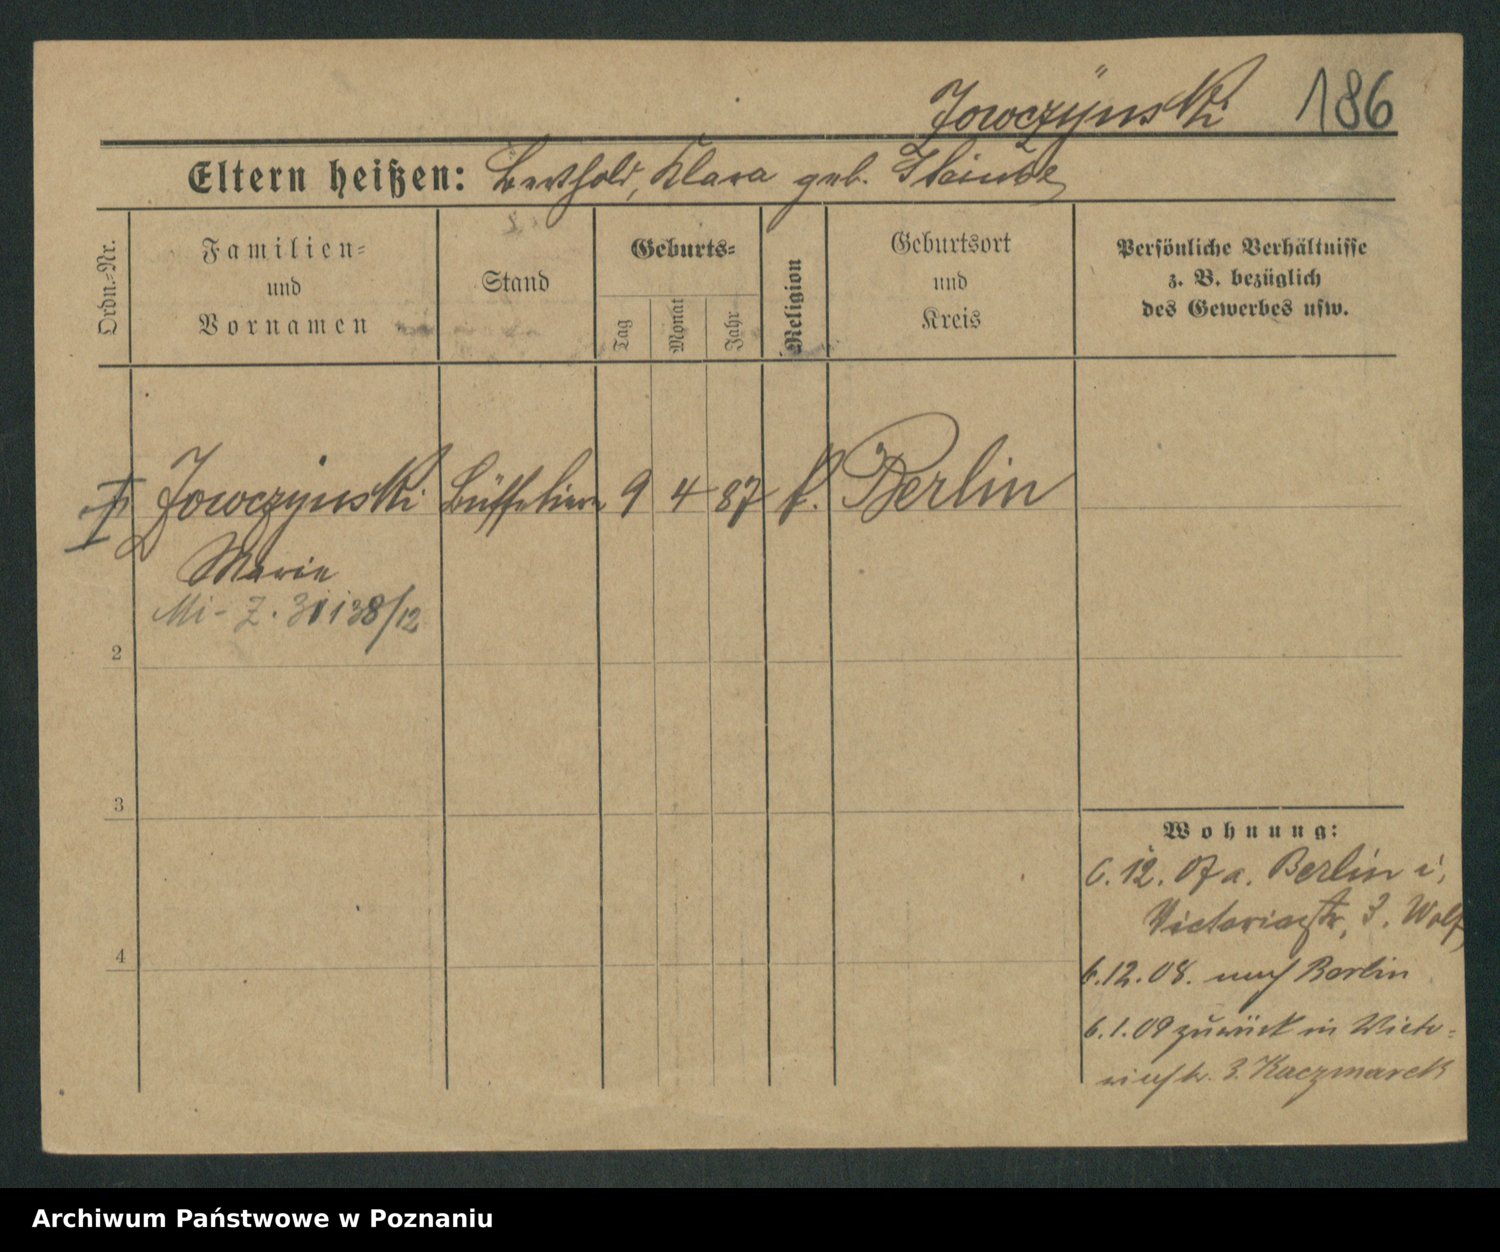 Jowczÿnski 186
Eltern heißen: Berthold, Klara geb. Steinke
Ordn.-Nr.
Familien-
und
Vornamen
Stand
Geburts-
Tag
Monat
Jahr
Religion
Geburtsort
und
Kreis
Persönliche Verhältnisse
z. B. bezüglich
des Gewerbes usw.
Jowczynski Büffetiere 9 4 87 k. Berlin
Marie
Mi-Z. 31138/12
2
3
4
Wohnung:
6. 12. 07 a. Berlin i,
Victoriastr, 3. Wolf
6.12.08. nach Berlin
6.1.09 zurück in Victo-
riastr. 3. Kaczmarek
Archiwum Państwowe w Poznaniu